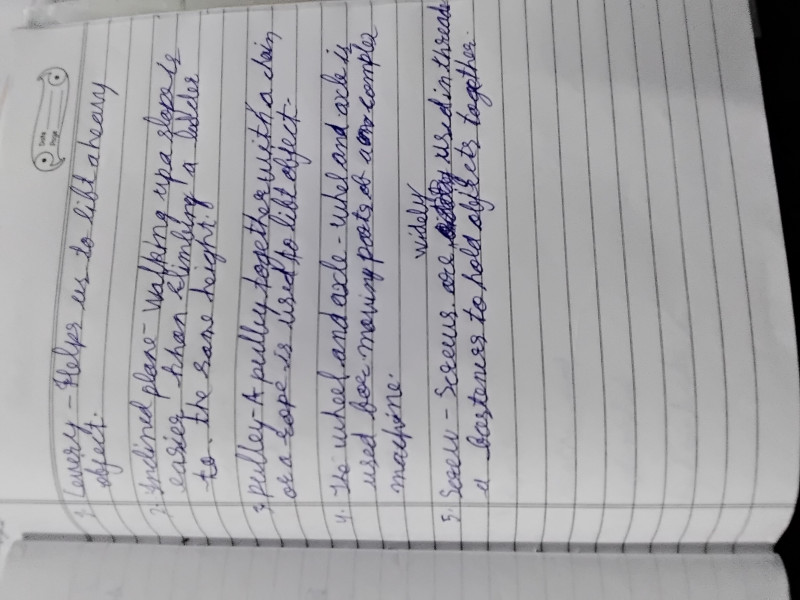 Date
Page
1. Levery - Helps us to libt a heavy
object.
2. Inclined plane - Walking up a slope is
easier than climbing a ladder
to the same height.
3. Pulley - A pulley together with a chain
or a rope is used to libt object -
4. The wheel and axle - wheel and axle is
used bor moving parts of a complex
machine.
widely
5. Screw - Screws are used in thread
a basteners to hold objects together.